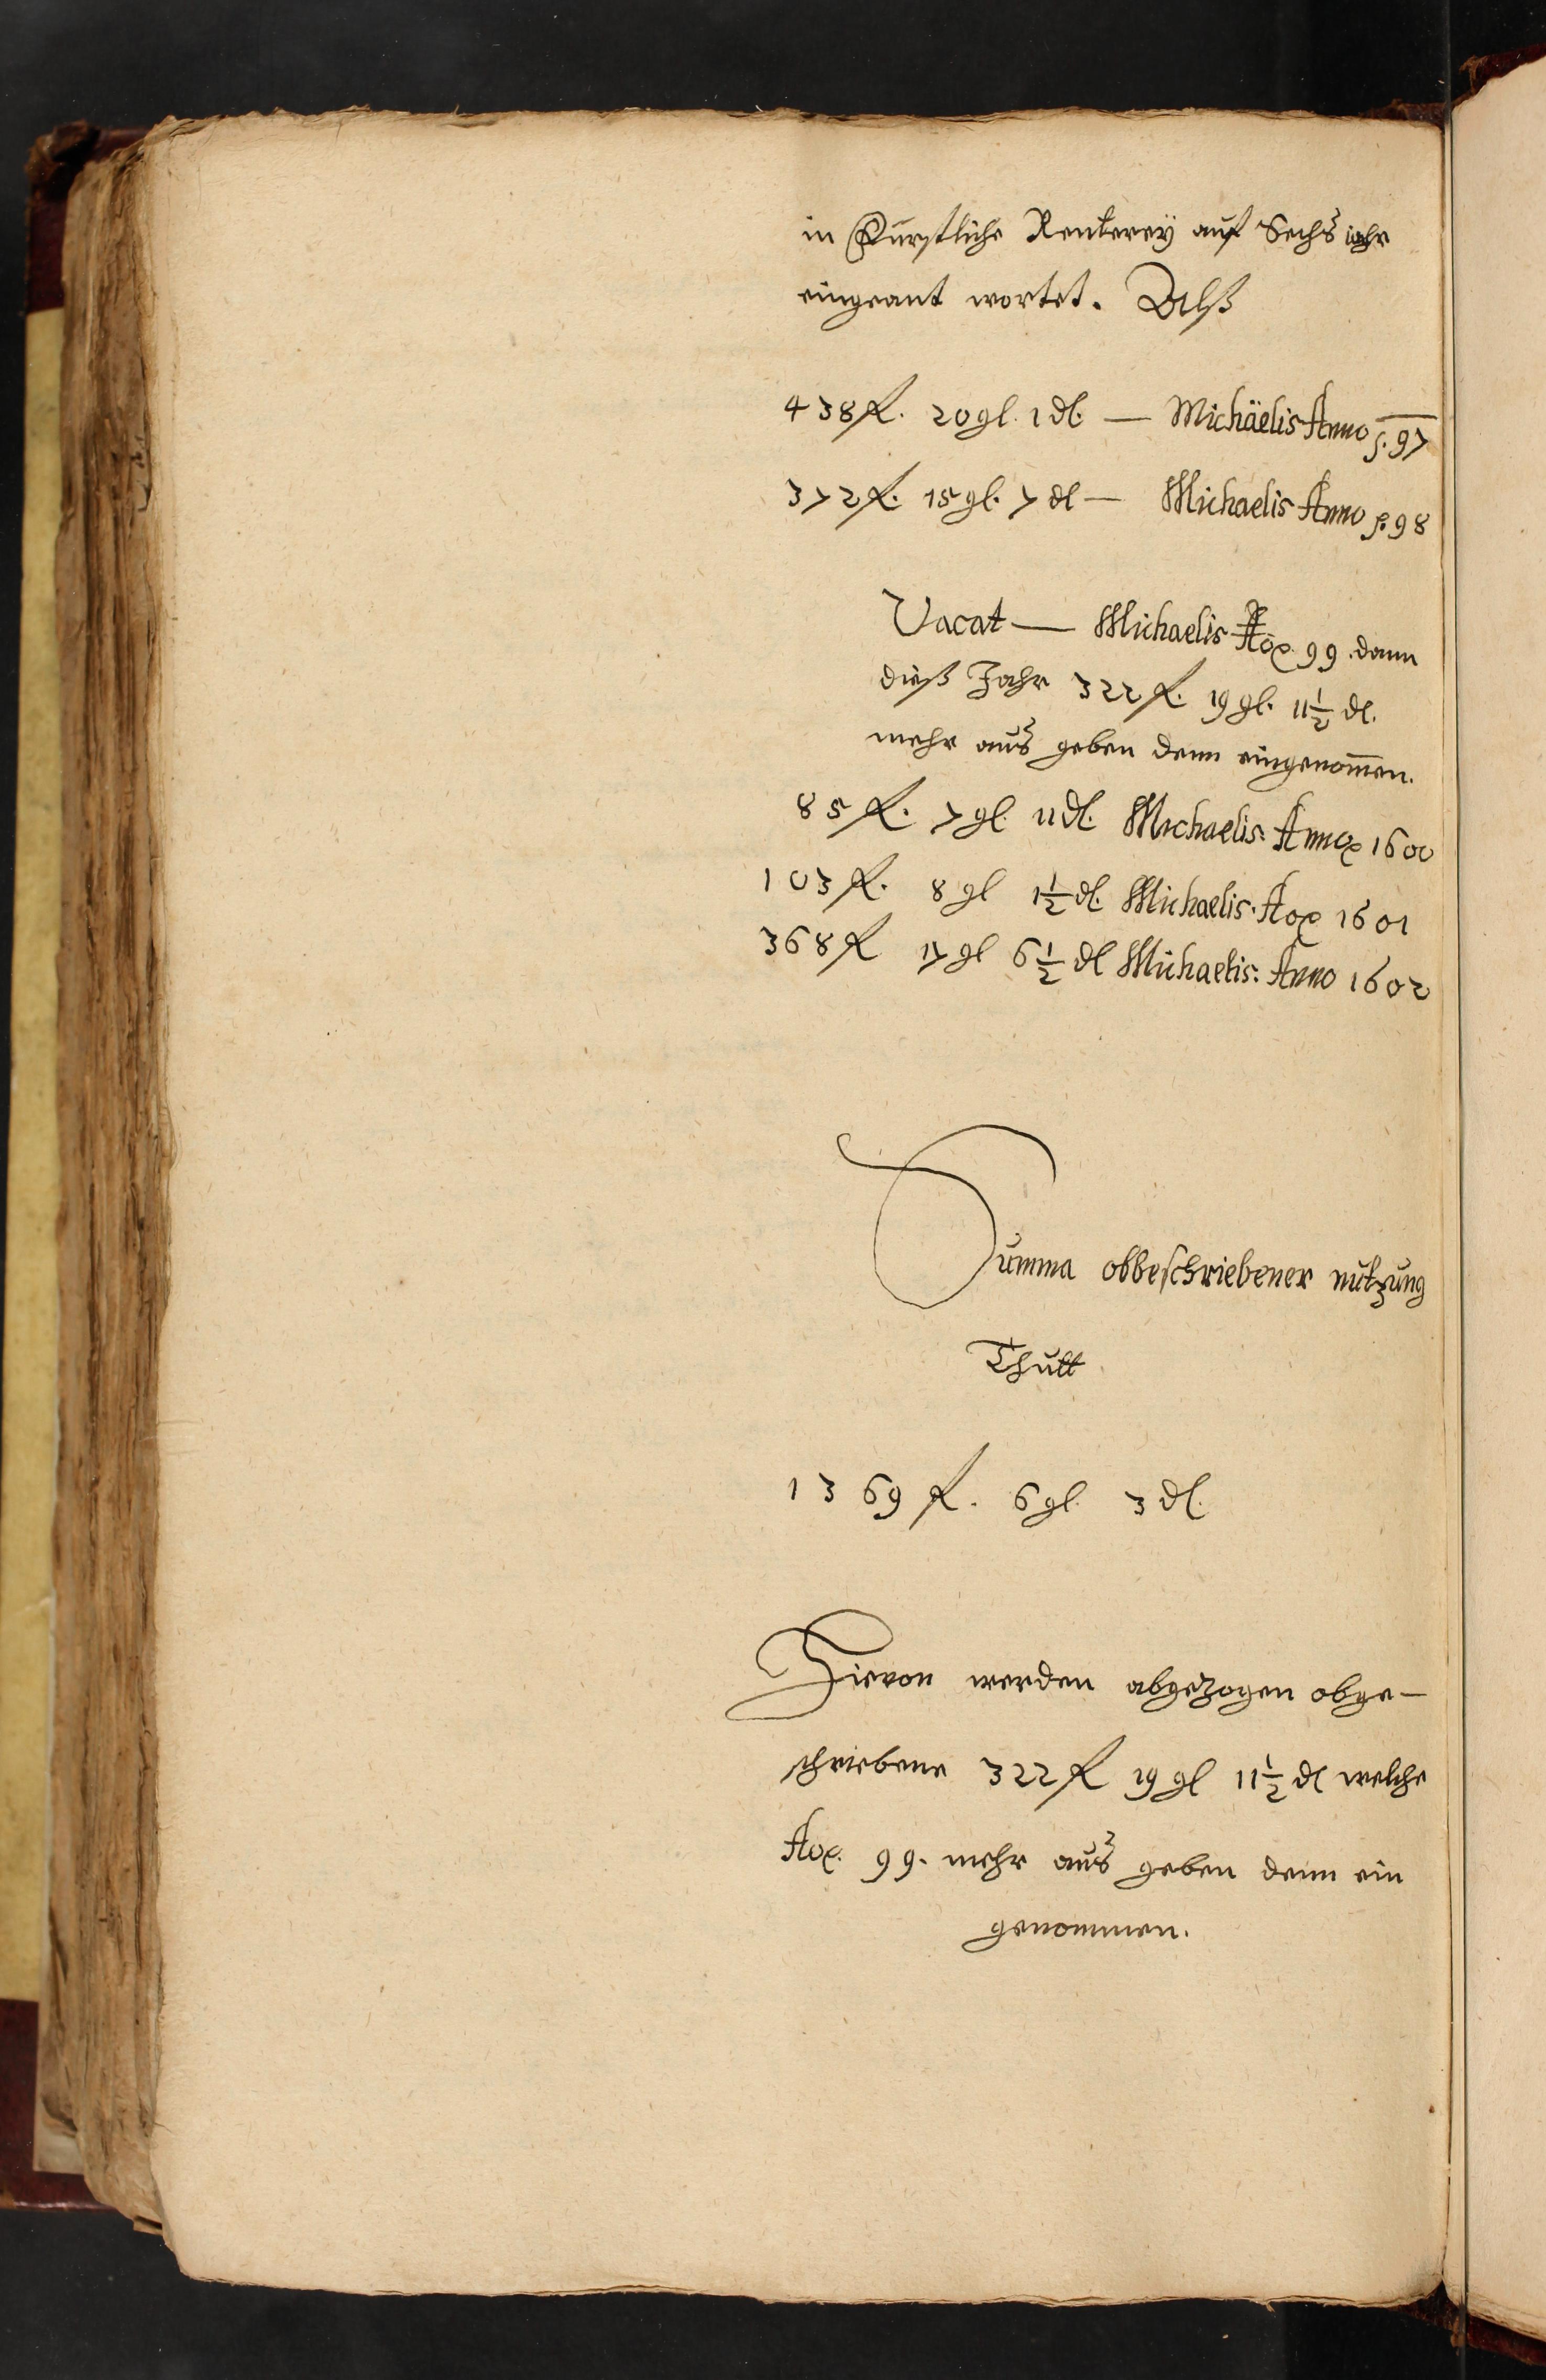 in Fürstliche Renterey auf Sechs iahr
eingeant wortet. Alß
438 fl. 20 gl. 1 dl. — Michäelis Anno p. 97
372 fl. 15 gl. 7 dl — Michaelis Anno p. 98
Vacat — Michaelis Aõ 99. dann
dieß Jahr 322 fl. 19 gl. 11 1/2 dl.
mehr aus geben denn eingenom̄en.
85 fl. 7 gl. 11 dl. Michaelis: Anno 1600
103 fl. 8 gl 1 1/2 dl. Michaelis: Ao 1601
368 fl 17 gl 6 1/2 dl Michaelis: Anno 1602
Summa obbeschriebener nutzung
Thutt
1369 fl. 6 gl. 3 dl.
Hievon werden abgezogen obge-
schriebene 322 fl 19 gl 11 1/2 dl welche
Ao. 99. mehr aus geben denn ein
genommen.